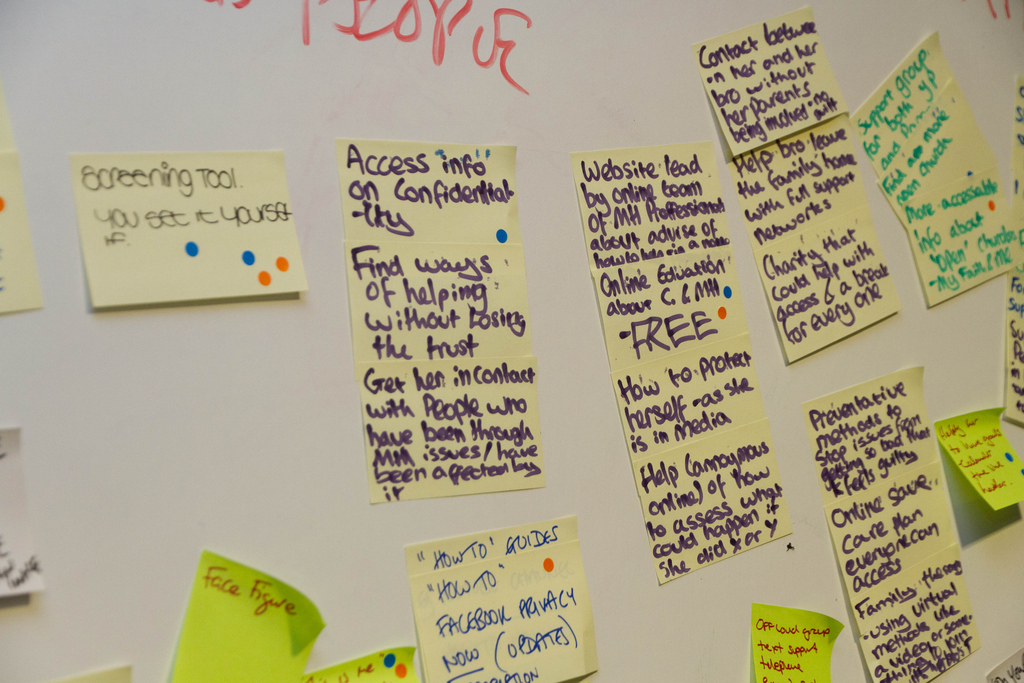 PEOPLE
Screening Tool.
You set it yourself
Access "info"
on Confidential
-ity
Find ways
of helping
without losing
the trust
Get her in contact
with People who
have been through
MH issues/have
been affected by
it
"HOW TO" GUIDES
"HOW TO"
FACEBOOK PRIVACY
NOW (UPDATES)
Face Figure
Website lead
by online team
of MH Professional
about advise of
how to be in a
Online Education
about C. & MH
-FREE
How to protect
herself - as she
is in media
Help (annoymous
online) of how
to assess what
could happen if
she did X or Y
Contact betwee
n her and her
bro without
her parents
being involved
Help bro leave
the family home
with full support
networks
Charity that
could help with
access & a break
for every one
Support group
for both yp
and
Find a more
open church
More accessible
info about
"Open" churches
- My Faith & Me
Preventative
methods to
stop issues from
getting so bad then
feels guilty
Online save..
care plan
everyone can
access
Family
- using virtual
methods like
a video or some-
Offload group
text support
telephone